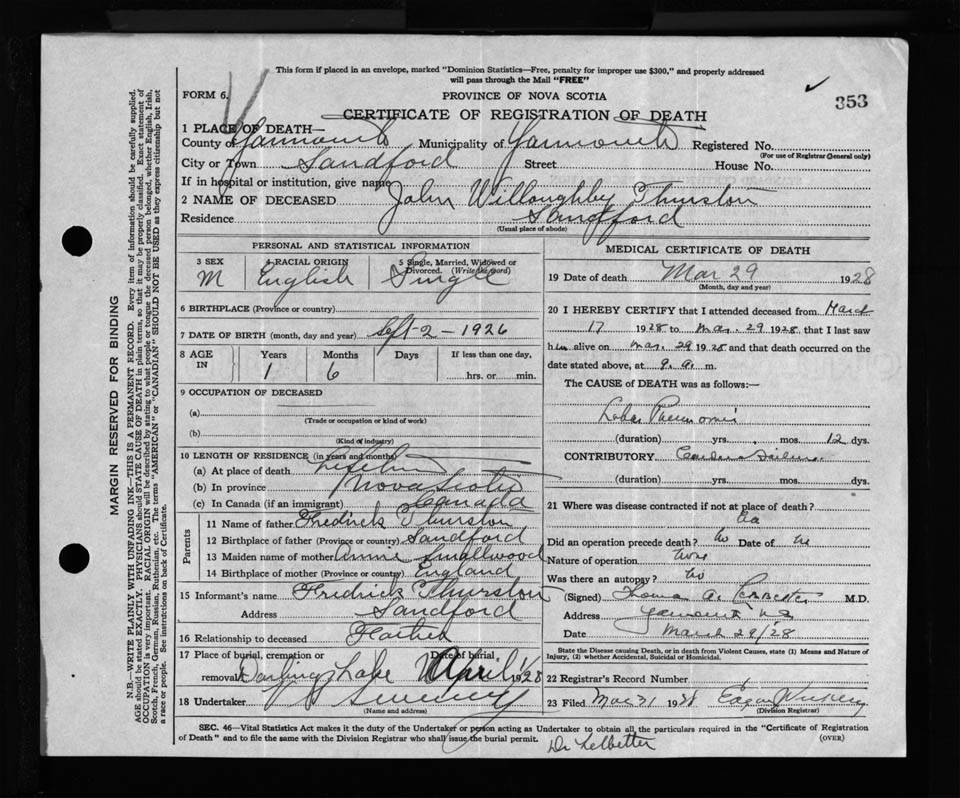 This form if placed in an envelope, marked "Dominion Statistics—Free, penalty for improper use $300," and properly addressed
will pass through the Mail "FREE"
FORM 6.
PROVINCE OF NOVA SCOTIA
353
CERTIFICATE OF REGISTRATION OF DEATH
1 PLACE OF DEATH—
County of Yarmouth Municipality of Yarmouth Registered No.
(For use of Registrar General only)
City or Town Sandford Street House No.
If in hospital or institution, give name
2 NAME OF DECEASED John Willoughby Thurston
Residence Sandford
(Usual place of abode)
PERSONAL AND STATISTICAL INFORMATION
3 SEX 4 RACIAL ORIGIN 5 Single, Married, Widowed or Divorced. (Write the word)
M English Single
6 BIRTHPLACE (Province or country)
7 DATE OF BIRTH (month, day and year) Sept-2-1926
8 AGE IN Years Months Days If less than one day,
1 6 hrs. or min.
9 OCCUPATION OF DECEASED
(a)
(Trade or occupation or kind of work)
(b)
(Kind of industry)
10 LENGTH OF RESIDENCE (in years and months)
(a) At place of death Lifetime
(b) In province Nova Scotia
(c) In Canada (if an immigrant) Canada
Parents
11 Name of father Fredrick Thurston
12 Birthplace of father (Province or country) Sandford
13 Maiden name of mother Annie Smallwood
14 Birthplace of mother (Province or country) England
15 Informant's name Fredrick Thurston
Address Sandford
16 Relationship to deceased Father
17 Place of burial, cremation or removal Date of burial
Darling Lake April 1/1928
18 Undertaker Sweeney
(Name and address)
MEDICAL CERTIFICATE OF DEATH
19 Date of death Mar 29 1928
(Month, day and year)
20 I HEREBY CERTIFY that I attended deceased from March
17 1928 to Mar. 29 1928 that I last saw
him alive on Mar. 29 1928 and that death occurred on the
date stated above, at 9. a. m.
The CAUSE of DEATH was as follows:—
Lobar
(duration) yrs. mos. 12 dys.
CONTRIBUTORY
(duration) yrs. mos. dys.
21 Where was disease contracted if not at place of death?
Did an operation precede death? No Date of
Nature of operation
Was there an autopsy? No
(Signed) Thomas A. M.D.
Address Yarmouth NS
Date March 29/28
State the Disease causing Death, or in death from Violent Causes, state (1) Means and Nature of
Injury, (2) whether Accidental, Suicidal or Homicidal.
22 Registrar's Record Number
23 Filed Mar 31 1928 Edgar
(Division Registrar)
SEC. 46—Vital Statistics Act makes it the duty of the Undertaker or person acting as Undertaker to obtain all the particulars required in the "Certificate of Registration
of Death" and to file the same with the Division Registrar who shall issue the burial permit.
(OVER)
Dr Lebbetter
MARGIN RESERVED FOR BINDING
N.B.—WRITE PLAINLY WITH UNFADING INK—THIS IS A PERMANENT RECORD. Every item of information should be carefully supplied.
AGE should be stated EXACTLY. PHYSICIANS should STATE CAUSE OF DEATH in plain terms, so that it may be properly classified. Exact statement of
OCCUPATION is very important. RACIAL ORIGIN will be described by stating to what people or tongue the deceased person belonged, whether English, Irish,
Scotch, French, German, Russian, Ruthenian, etc. The terms "AMERICAN" or "CANADIAN" SHOULD NOT BE USED as they express citizenship but not
a race or people. See instructions on back of Certificate.